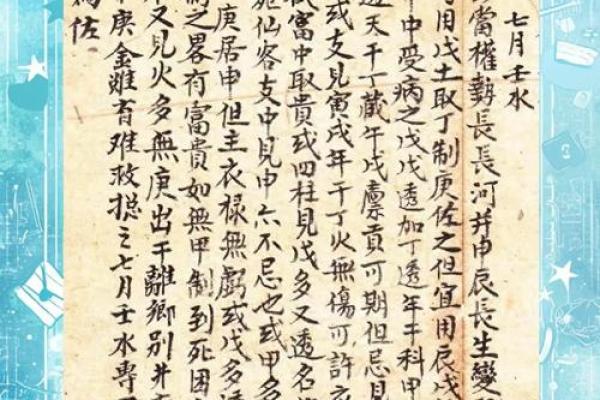 七月壬水
當權勢長長河并申辰長生變
用戊土取丁制庚佐之但宜用辰戌
中受病之戊戊透加丁透年干科甲
透天干丁藏午戌廩貢可期但忌見
或支見寅戌年干丁火無傷可許衣
富中取貴或四柱見戊多又透名
苑仙客支中見申六不忌也或甲多
庚居申但主衣祿無虧或戊多透
制之畧有富貴如無甲制到死困
又見火多無庚出干離鄉別井
庚金雖有难救捴之七月壬水專用
為佐